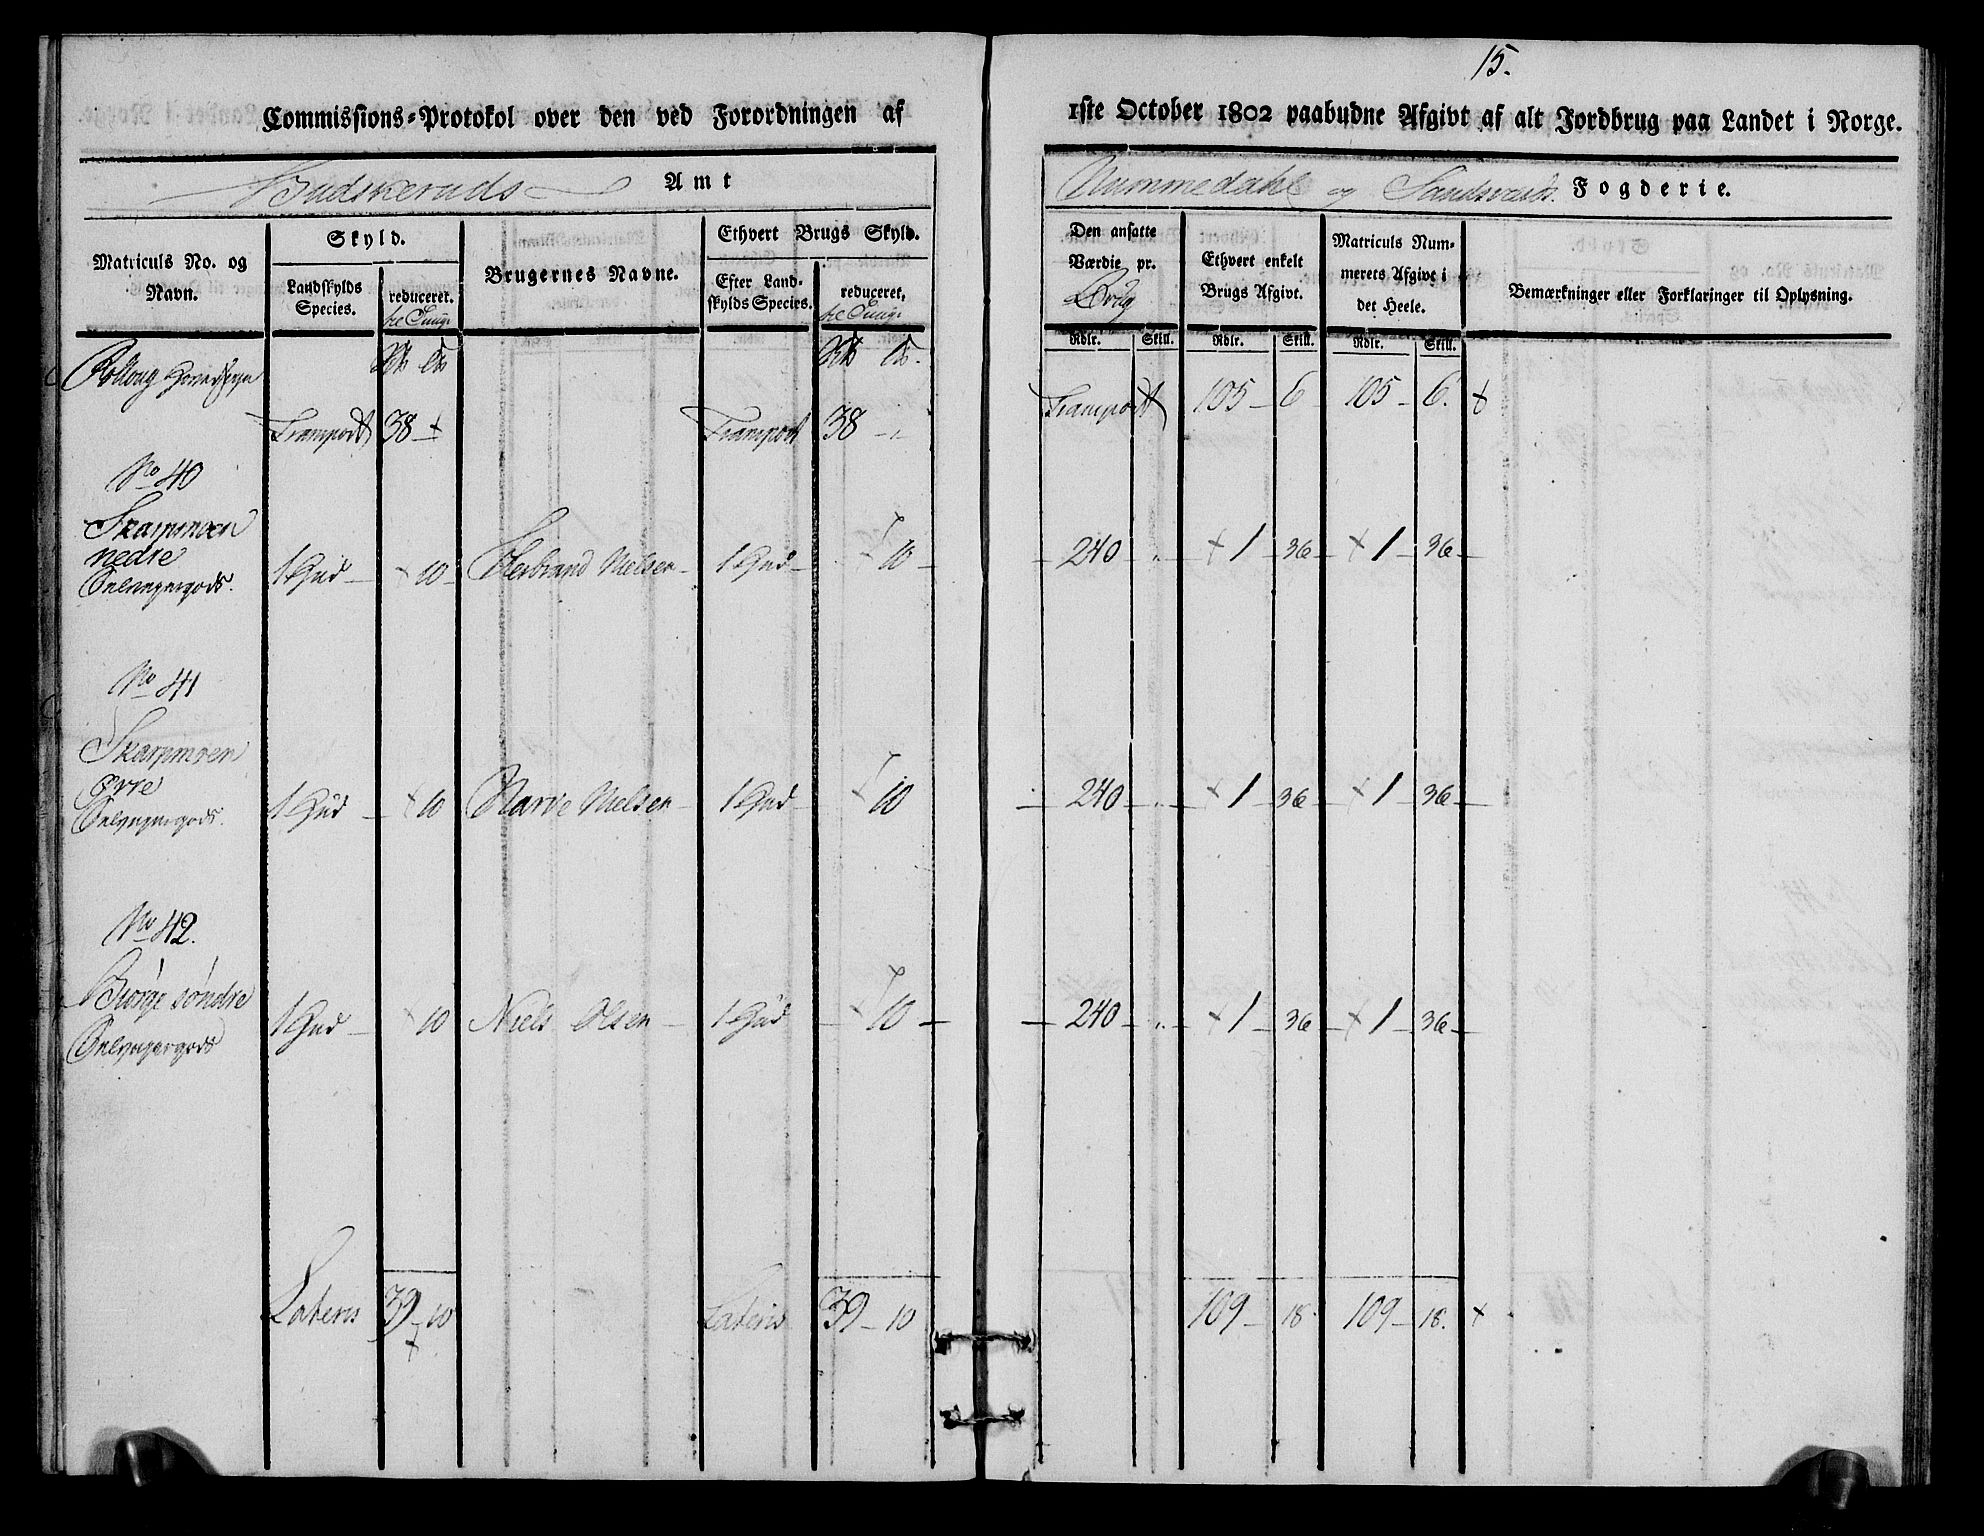 15.
Commissions-Protokol over den ved Forordningen af 1ste October 1802 paabudne Afgivt af alt Jordbrug paa Landet i Norge.
Budskeruds Amt
Nummedahl og Sandsværds Fogderie.
Matriculs No. og Navn.
Skyld.
Landskylds Species.
reduceret.
Brugernes Navne.
Ethvert Brugs Skyld.
Efter Landskylds Species.
reduceret,
Den ansatte Værdie pr. Brug
Ethvert enkelt Brugs Afgivt.
Matriculs Nummerets Afgivt i det Heele.
Bemærkninger eller Forklaringer til Oplysning.
Rdlr. Skill. Rdlr. Skill. Rdlr. Skill.
Rolloug
Transport 38 Transport 38 Transport 105 6 105 6.
No 40
Skarpmoen
nedre
Selveyergods. 1 Hud 10 Herbrand Nielsen 1 Hud 10 240 " 1 36 1 36
No 41
Skarpmoen
øvre
Selveyergods. 1 Hud 10 Narve Nielsen 1 Hud 10 240 " 1 36 1 36
No 42.
Biørge søndre
Selveyergods 1 Hud 10 Niels Olsen 1 Hud 10 240 " 1 36 1 36
Lateris 39 10 Lateris 39 10 109 18. 109 18.